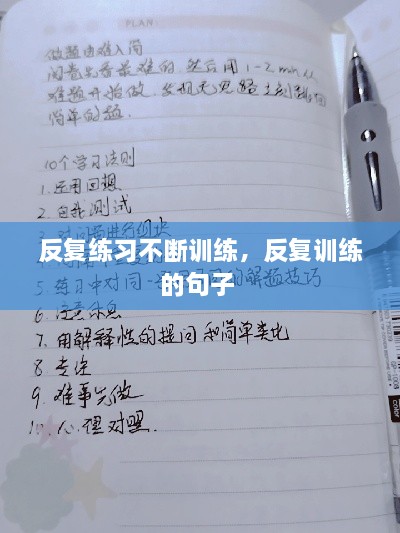 PLAN
做题由难入简
阅卷先看最难的 然后用1-2 min从
难题开始做,发现无思路立刻跳回
简单的题.
10个学习法则
1.运用回想
2.自我测试
3.对问题进行组块
反复练习不断训练，反复训练
的句子
5.练习中对同一 的解题技巧
6.注意休息
7.用解释性的提问和简单类比
8.专注
9.难事先做
10.心理对照.
GP-1008
color